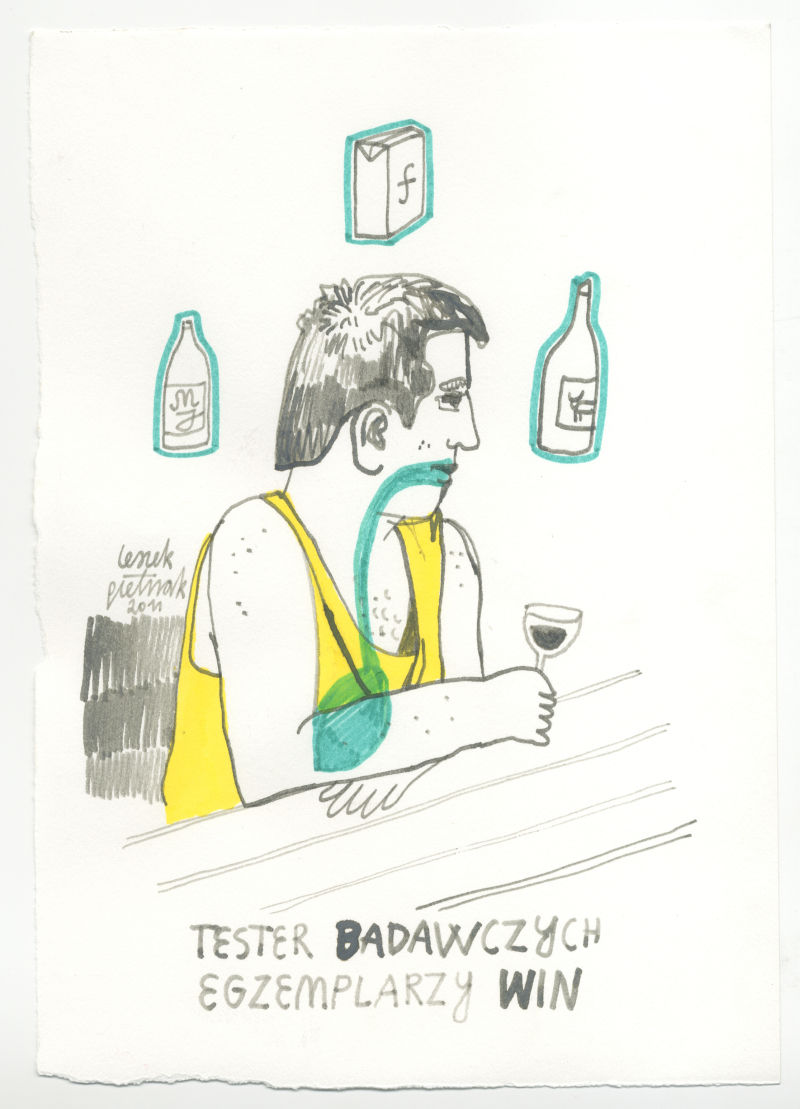 f
leszek
pietrzak
2011
TESTER BADAWCZYCH
EGZEMPLARZY WIN